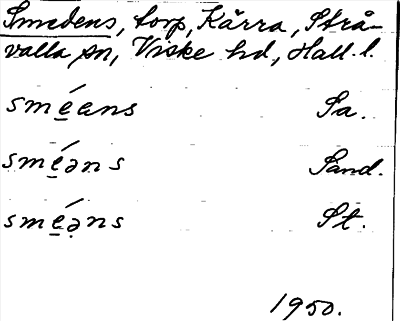 Smedens, torp, Kärra, Strå-
valla sn, Viske hd, Hall. l.
smé̲ens Sa.
smé̲əns Sand.
smé̲ə̣ns St.
1950.